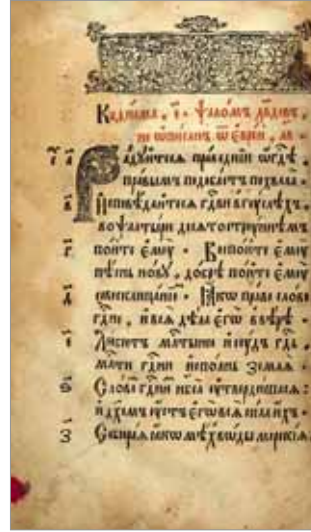 Каѳисма, е҃. Ѱаломъ дв҃довъ,
не ѡ҆писанъ ѿ є҆врей, лв.
а҃ Радꙋйтесѧ праведнїи ѡ҆ гдѣ,
правымъ подобаетъ похвала.
в҃ И҆сповѣдайтесѧ гдви в гꙋслехъ,
во ѱалтыри десѧтострꙋннѣмъ
г҃ пойте є҆мꙋ. Воспойте є҆мꙋ
пѣснь новꙋ, добрѣ пойте є҆мꙋ
д҃ Ꙗ҆кѡ право слово
гдне, и҆ всѧ дѣла є҆гѡ в вѣрѣ.
е҃ Любитъ млтыню и҆ сꙋдъ гдь,
млти гдни и҆сполнь землѧ.
ѕ҃ Словомъ гднимъ нб҃са ᲂу҆твердишасѧ:
и҆ дх҃омъ ᲂу҆стъ є҆гѡ всѧ сила и҆хъ.
з҃ Собираѧ ꙗ҆кѡ мѣхъ воды морскїѧ: